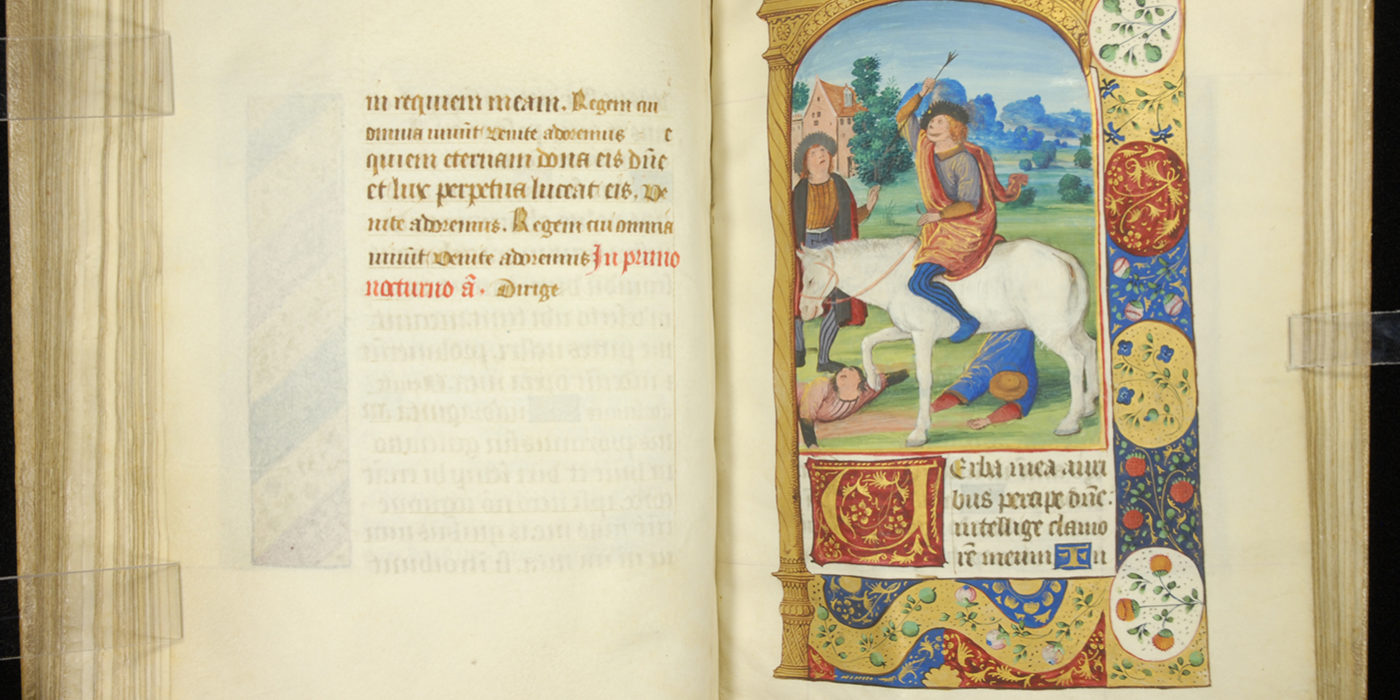 in requiem meam. Regem cui
omnia uiuũt Venite adoremus e
quiem eternam dona eis dñe
et lux perpetua luceat eis. Ve
nite adoremus. Regem cui omnia
uiuũt Venite adoremus In primo
nocturno ã. Dirige
VErba mea auri
bus percipe dñe:
intellige clamo
rẽ meum In